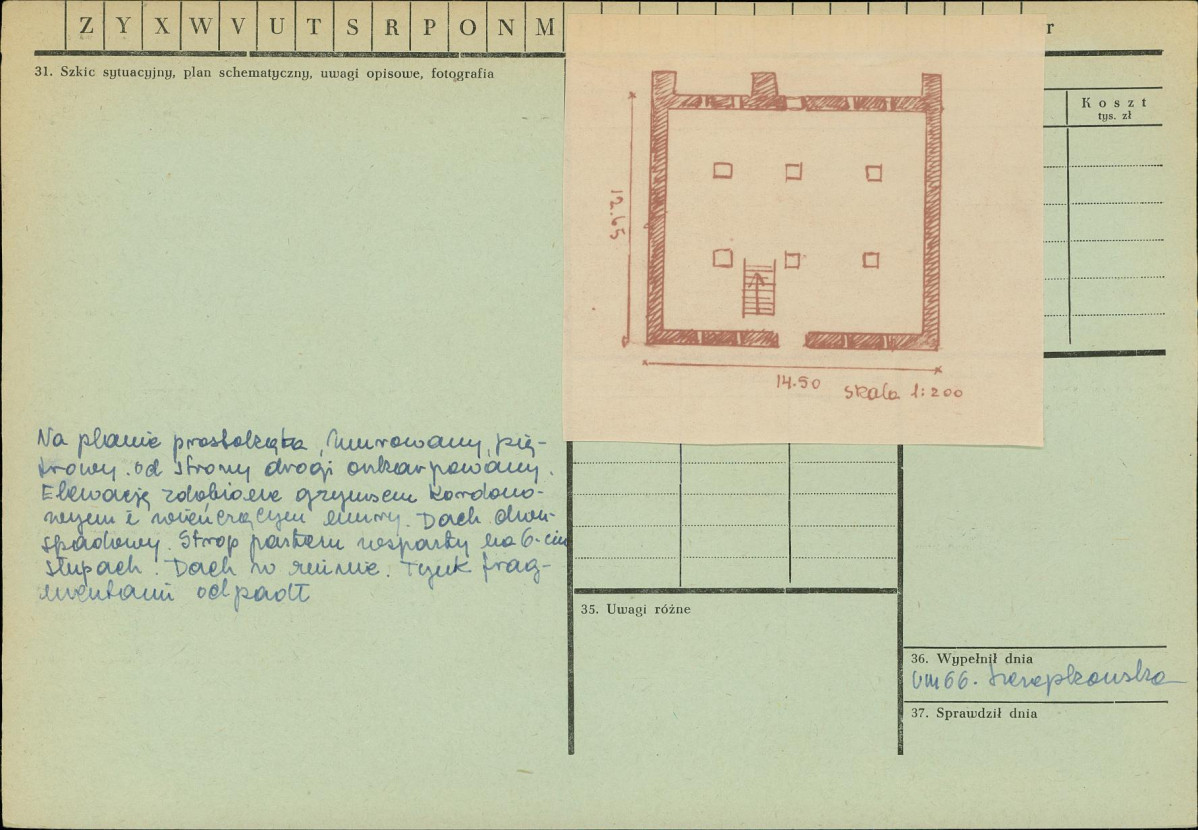 Z Y X W V U T S R P O N M
r
31. Szkic sytuacyjny, plan schematyczny, uwagi opisowe, fotografia
Koszt
tys. zł
12.65
14.50 skala 1:200
Na planie prostokąta, murowany, pię-
trowy. od strony drogi oskarpowany.
Elewacje zdobione gzymsem kordono-
wym i wieńczącym mury. Dach dwu-
spadowy. Strop parteru wsparty na 6-ciu
słupach. Dach w ruinie. Tynk frag-
mentami odpadł
35. Uwagi różne
36. Wypełnił dnia
VIII 66.
37. Sprawdził dnia